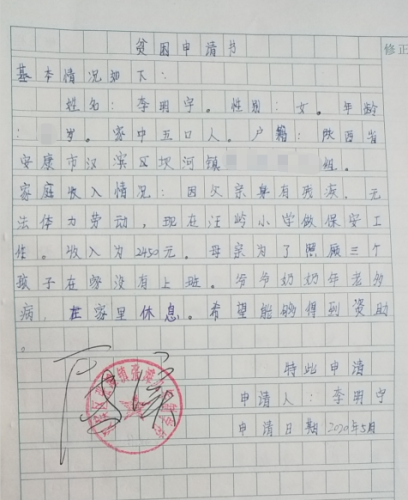 贫困申请书
修正
基本情况如下：
姓名：李明宇。性别：女。年龄：
岁。家中五口人。户籍：陕西省
安康市汉滨区坝河镇组。
家庭收入情况：因父亲身有残疾，无
法体力劳动，现在汪岭小学做保安工
作。收入为2450元。母亲为了照顾三个
孩子在家没有上班。爷爷奶奶年老多
病，在家里休息。希望能够得到资助
。
特此申请
申请人：李明宇
申请日期2020年5月